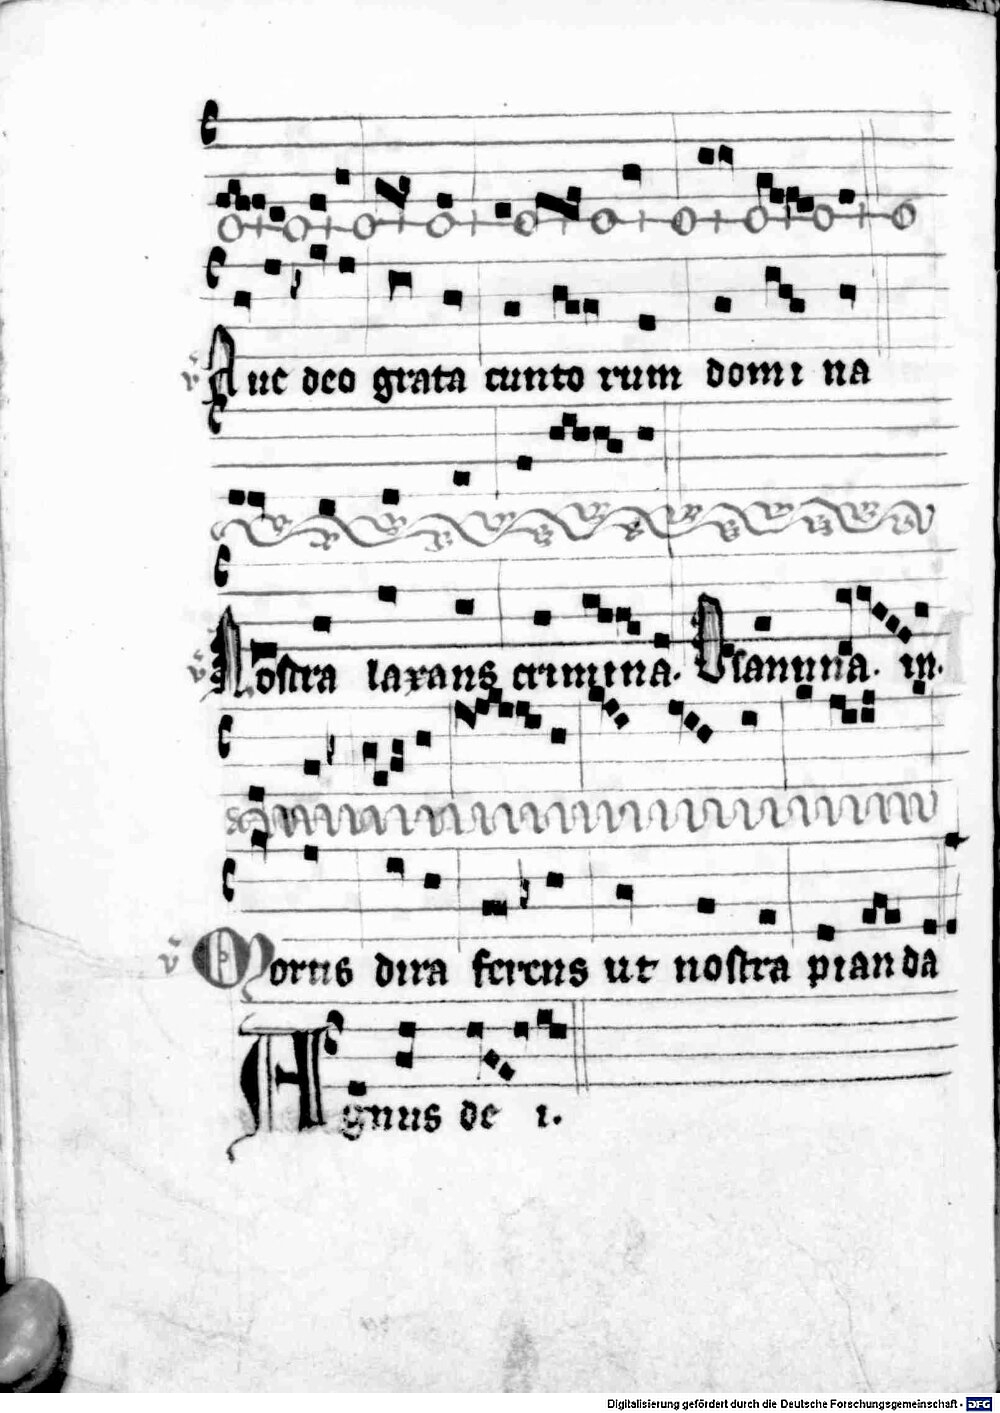 v Aue deo grata cunto rum domi na
v Nostra laxans crimina. Osanna. in.
v Mortis dira ferens ut nostra pian da
Agnus de i.
Digitalisierung gefördert durch die Deutsche Forschungsgemeinschaft - DFG